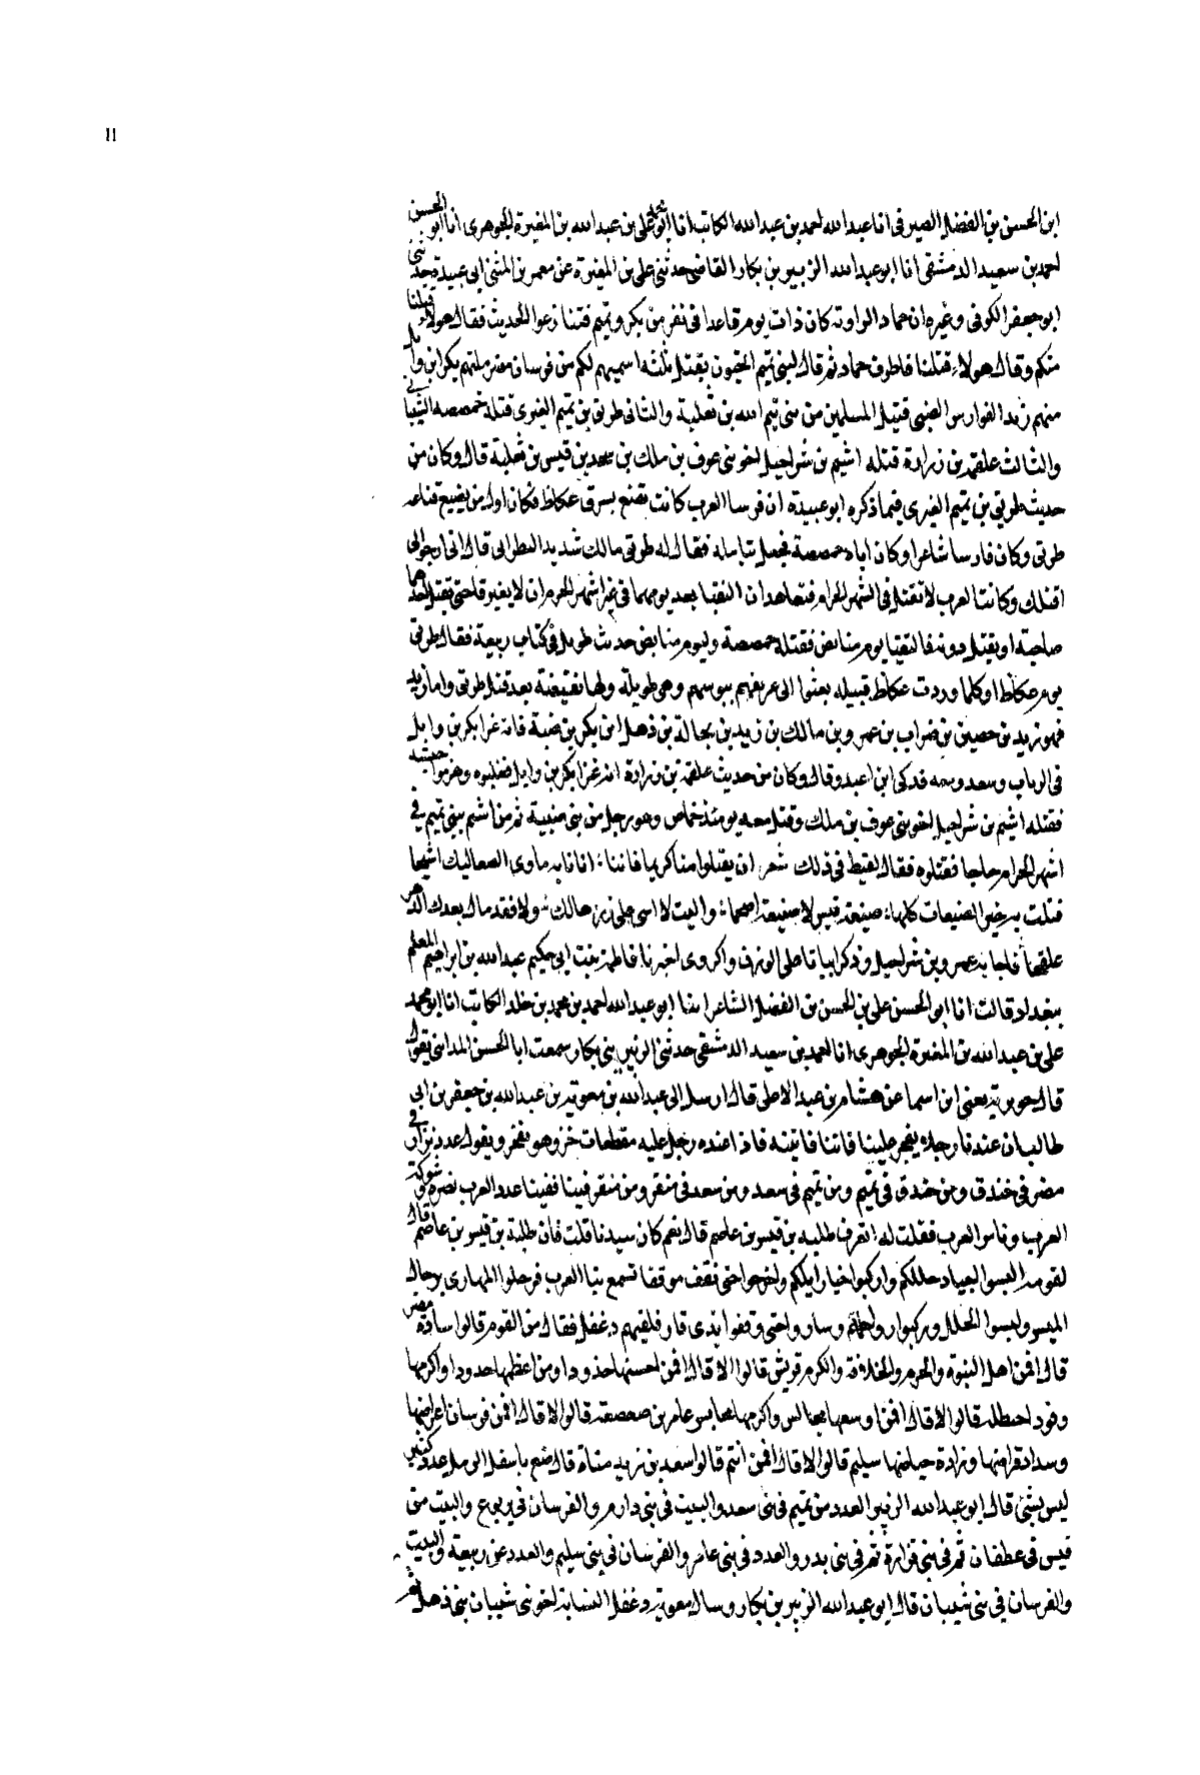 11
ابن الحسن بن الفضل الصيرفى انا عبدالله احمد بن عبدالله الكاتب انا ابو محمد على بن عبدالله بن المغيرة الجوهرى انا ابو الحسن
احمد بن سعيد الدمشقى انا ابو عبدالله الزبير بن بكار القاضى حدثنى على بن المغيرة عن معمر بن المثنى ابى عبيدة حدثنى
ابو جعفر الكوفى وغيره ان حماد الراوية كان ذات يوم قاعدا فى نفر من بكر وتميم فتنازعوا الحديث فقال هولاء قتلنا
منكم وقال هولاء قتلنا فاطرف حماد ثم قال لبنى تميم اتجيون بقتل ثلثه اسميهم لكم من فرسان مضر قتلتهم بكر ابن وايل
منهم زيد الفوارس الضبى قتيل المسلمين من بنى تيم الله بن ثعلبة والثانى طريق بن تميم العنبرى قتله حمصصه الشيبانى
والثالث علقمة بن زرارة قتله اشيم بن شراحيل اخو بنى عوف بن ملك بن سعد بن قيس بن ثعلبة قال وكان من
حديث طريق بن تميم العنبرى فيما ذكره ابو عبيدة ان فرسا العرب كانت تقنع بسوق عكاظ فكان اول من يضيع قناعه
طريق وكان فارسا شاعرا وكان اياد حمصصة فجعل يتأمله فقال له طريق مالك شديد النظر الى قال انى ارجو ان
اقتلك وكانت العرب لا تقتل فى الشهر الحرام فتعاهدا ان التقيا بعد يومهما فى غير اشهر الحرم ان لا يفترقا حتى يقتل احدهما
صاحبه او يقتل دونه فالتقيا يوم منابض فقتله حمصصة وليوم منابض حديث طويل فى كتاب ربيعة فقال طريق
يوم عكاظ او كلما وردت عكاظ قبيله بعثوا الى عريفهم يتوسهم وهى طويلة ولها نقيضة بعد قتل طريق واما زيد
فهو زيد بن حصين بن ضراب بن عمرو بن مالك بن زيد بن بجالة بن ذهل ابن بكر بن ضبة فانه غزا بكر بن وايل
فى الرباب وسعد ومعه فدكى ابن اعبد وقال وكان من حديث علقمة بن زرارة انه غزا بكر بن وايل فغلبوه وهزموا جيشه
فقتله اشيم بن شراحيل اخو بنى عوف بن ملك وقتل معه يومئذ خماص وهو رجل من بنى ضبية ثم من اشيم ببنى تميم فى
اشهر الحرام حاجا فقتلوه فقال لقيط فى ذلك شعر ان يقتلوا منا كريما فاننا انا نابه ماوى الصعاليك اشيما
قتلت به خير الضبيعات كلها ضبيعة قيس لا ضبيعة اضجما واليت لا اسى على زين هالك ولا فقد مال بعدك الدهر
علقما فاجابه عمرو بن شراحيل وذكر ابياتا على الوزن واكروى اخبرنا فاطمة بنت ابى حكيم عبدالله بن ابراهيم المعلم
ببغداد قالت انا ابو الحسن على بن الحسن بن الفضل الشاعر انا ابو عبدالله احمد بن محمد بن خلد الكاتب انا ابو محمد
على بن عبدالله بن المغيرة الجوهرى انا احمد بن سعيد الدمشقى حدثنى الزبير بن بكار سمعت ابا الحسن المداينى يقول
قال جويرية يعنى ابن اسما عن هشام بن عبد الاعلى قال ارسل الى عبدالله بن معوية بن عبدالله بن جعفر بن ابى
طالب ان عندنا رجلا يفخر علينا فاتنا فاتيته فاذا عنده رجل عليه مقطعات خز وهو يفخر ويقول عدد نزار فى
مضر فى خندق ومن خندق فى تميم ومن تميم فى سعد ومن سعد فى منقر ومن منقر فينا ففينا عدد العرب نضره وشوكة
العرب وناس العرب فقلت له اتعرف طلبة بن قيس بن عاصم قال نعم كان سيدنا قلت فان طلبة بن قيس بن عاصم قال
لقومه البسوا لجياد حللكم واركبوا خيار ابلكم واخرجوا حتى نقف موقفا تسمع بنا العرب فرحلوا المهارى برحال
الميس ولبسوا الحلل وركبوا رواحلهم وساروا حتى وقفوا بذى قار فلقيهم دغفل فقال من القوم قالوا سادة مضر
قال افمن اهل النبوة والحرم والخلافة والكرم قريش قالوا لا قال افمن احسنها خدودا ومن اعظمها جدودا واكرمها
وفودا حنظلة قالوا لا قال افمن اوسعها مجالس واكرمها محابس عامر بن صعصعة قالوا لا قال افمن فرسان اعراضها
وسداد قرانها وزادة حياضها سليم قالوا لا قال افمن انتم قالوا سعد بن زيد مناة قال ضع باسفل الرمل عدد كثير
ليس بشئ قال ابو عبدالله الزبير العدد من تميم فى بنى سعد والبيت فى بنى دارم والفرسان فى يربوع والبيت من
قيس فى غطفان ثم فى بنى فزارة ثم فى بنى بدر والعدد فى بنى عامر والفرسان فى بنى سليم والعدد عن ربيعة والبيت
والفرسان فى بنى شيبان قال ابو عبدالله الزبير بن بكار وسال معوية دغفل النسابة اخو بنى شيبان بنى ذهل